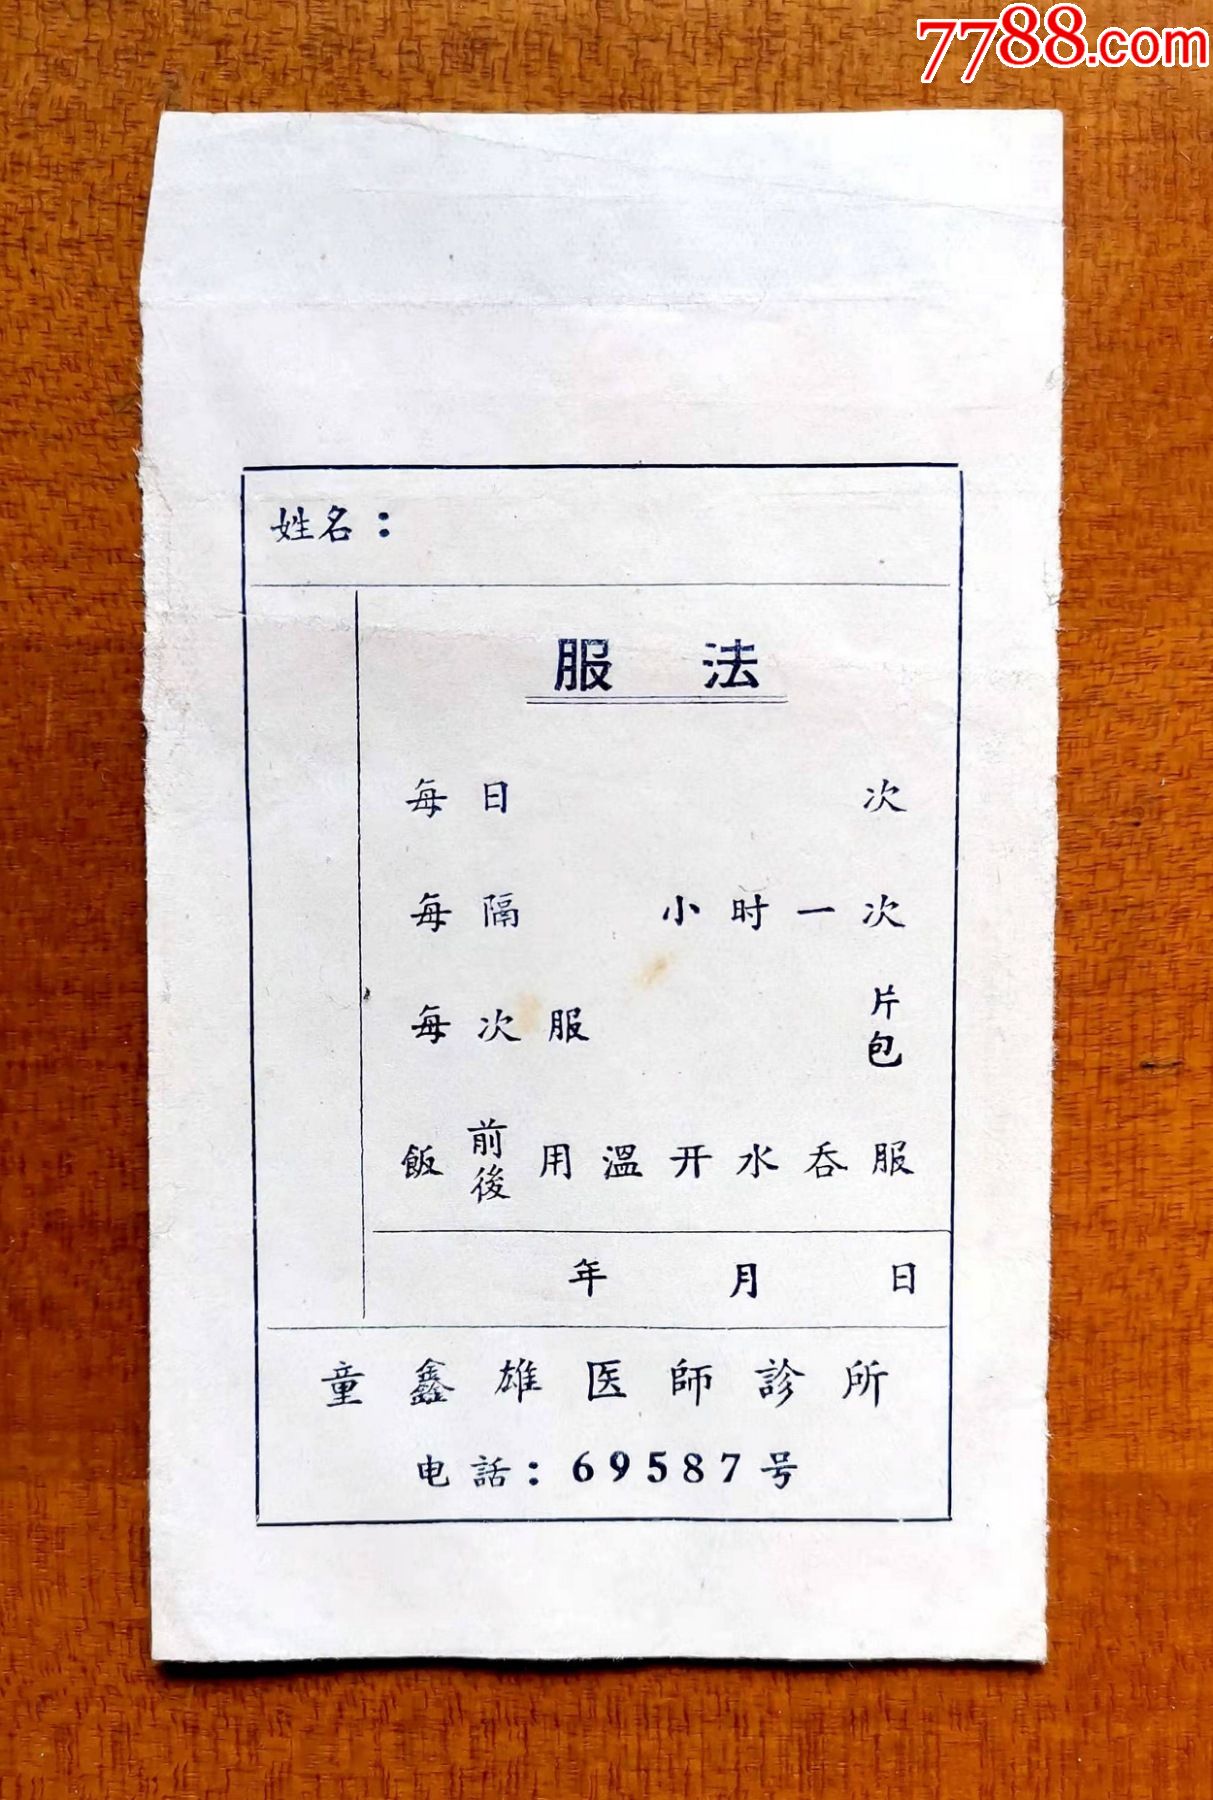 7788.com
姓名：
服 法
每日 次
每隔 小时一次
每次服 片
包
飯 前
後 用溫开水吞服
年 月 日
童鑫雄医師診所
电話：69587号